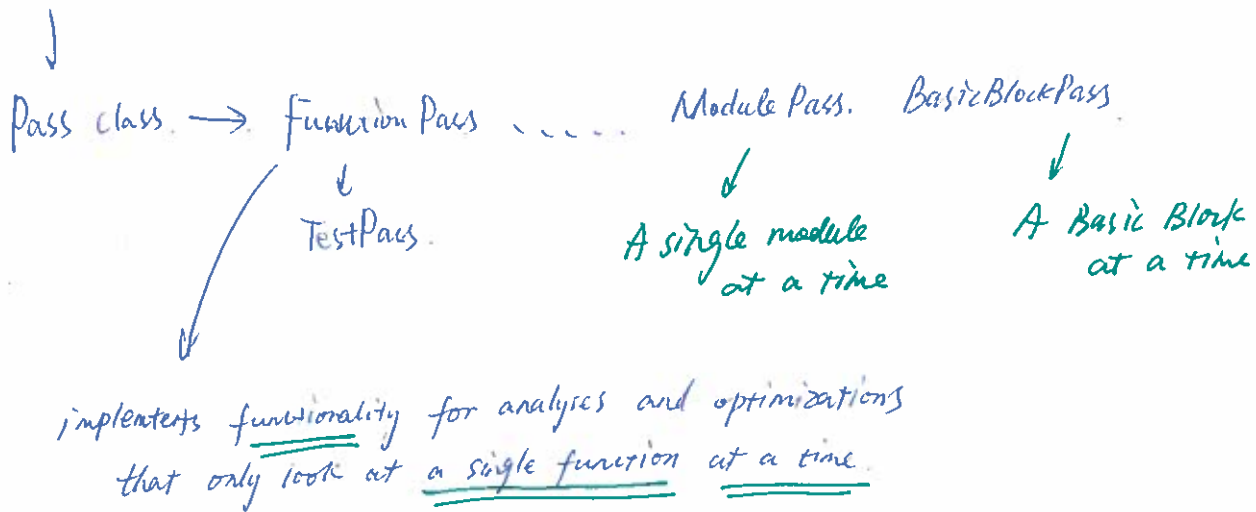 Pass class. → FunctionPass ..... ModulePass. BasicBlockPass
TestPass.
A single module
at a time
A Basic Block
at a time
implements functionality for analyses and optimizations
that only look at a single function at a time.